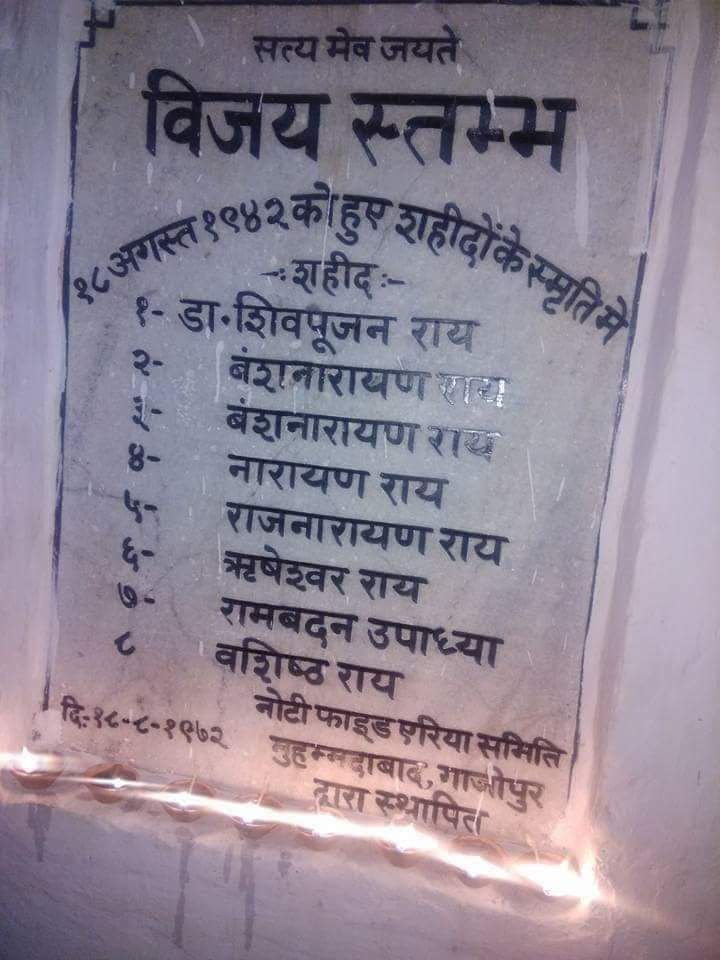 सत्य मेव जयते
विजय स्तम्भ
१८ अगस्त १९४२ को हुए शहीदों के स्मृति मे
-: शहीद :-
१- डा॰ शिवपूजन राय
२- बंशनारायण राय
३- बंशनारायण राय
४- नारायण राय
५- राजनारायण राय
६- ऋषेश्वर राय
७- रामबदन उपाध्या
८ वशिष्ठ राय
दि:१८-८-१९७२
नोटी फाइड एरिया समिति
मुहम्मदाबाद, गाजीपुर
द्वारा स्थापित